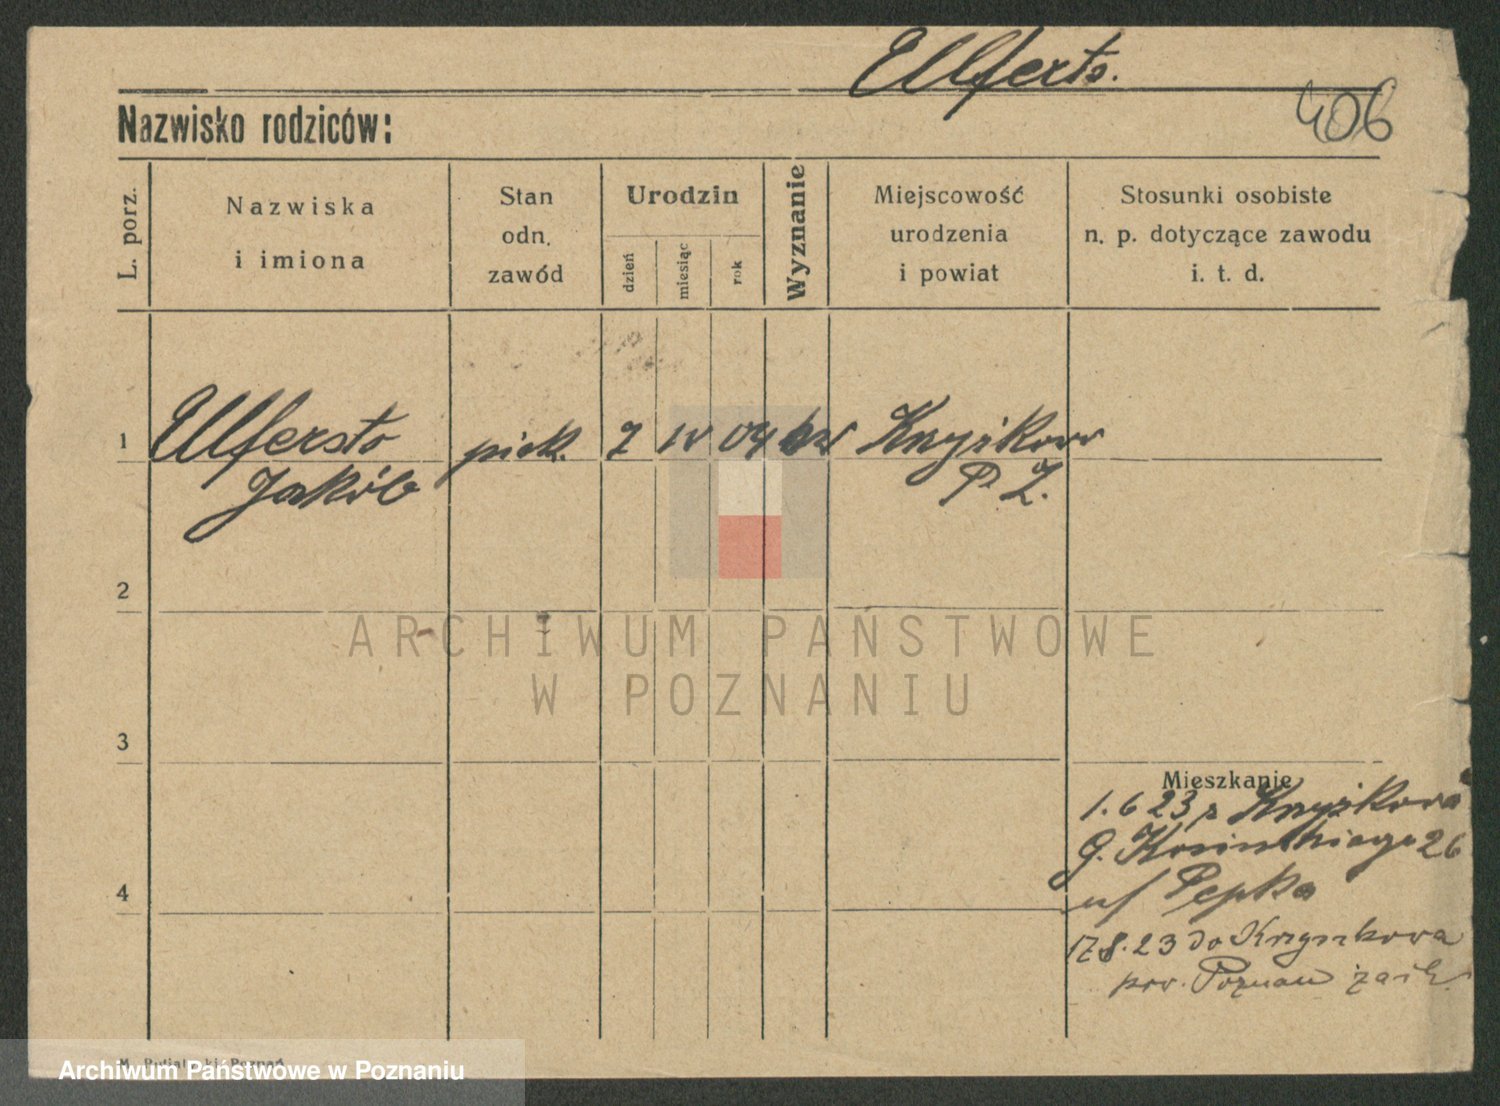 Ulferts.
406
Nazwisko rodziców:
L. porz.
Nazwiska
i imiona
Stan
odn.
zawód
Urodzin
dzień
miesiąc
rok
Wyznanie
Miejscowość
urodzenia
i powiat
Stosunki osobiste
n. p. dotyczące zawodu
i. t. d.
1
Ulfersto
Jakób
piek.
7
IV
04
Knyikow
P. Z.
2
ARCHIWUM PAŃSTWOWE
W POZNANIU
3
Mieszkanie
1. 6 23 z
G. 26
u/ Pepka
4
17.8.23 do
pow. Poznań
Archiwum Państwowe w Poznaniu